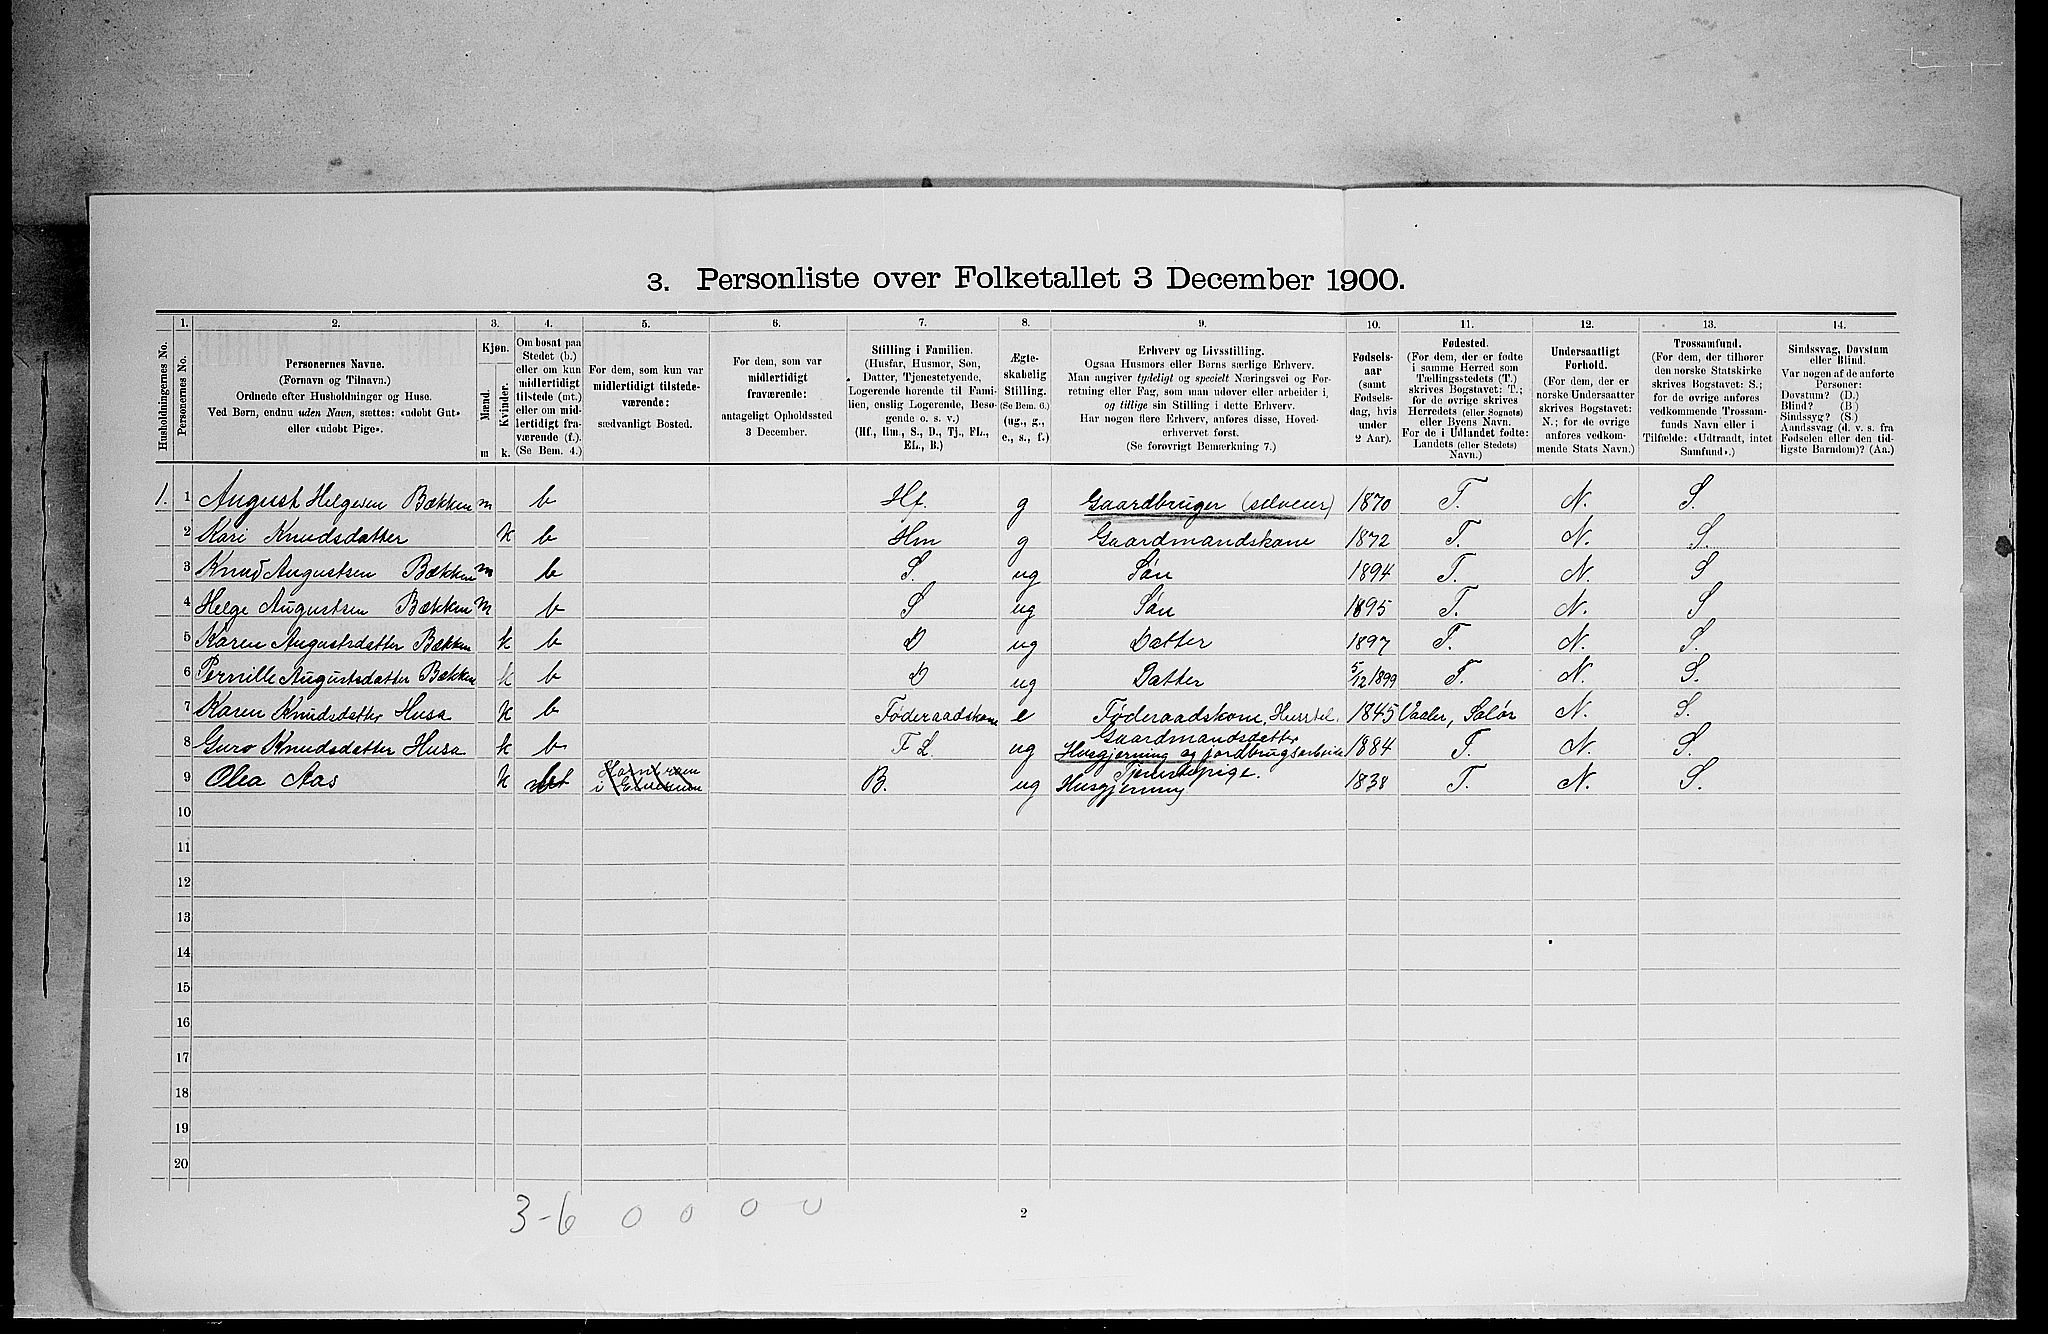 3. Personliste over Folketallet 3 December 1900.
1. 2. 3. 4. 5. 6. 7. 8. 9. 10. 11. 12. 13. 14.
Husholdningernes No.
Personernes No.
Personernes Navne.
(Fornavn og Tilnavn.)
Ordnede efter Husholdninger og Huse.
Ved Børn, endnu uden Navn, sættes: «udøbt Gut»
eller «udøbt Pige».
Kjøn.
Mænd.
Kvinder.
m k.
Om bosat paa
Stedet (b.)
eller om kun
midlertidigt
tilstede (mt.)
eller om mid-
lertidigt fra-
værende (f.).
(Se Bem. 4.)
For dem, som kun var
midlertidigt tilstede-
værende:
sædvanligt Bosted.
For dem, som var
midlertidigt
fraværende:
antageligt Opholdssted
3 December.
Stilling i Familien.
(Husfar, Husmor, Søn,
Datter, Tjenestetyende,
Logerende hørende til Fami-
lien, enslig Logerende, Besø-
gende o. s. v.)
(Hf., Hm., S., D., Tj., FL.,
EL., B.)
Ægte-
skabelig
Stilling.
(Se Bem. 6.)
(ug., g.,
e., s., f.)
Erhverv og Livsstilling.
Ogsaa Husmors eller Børns særlige Erhverv.
Man angiver tydeligt og specielt Næringsvei og For-
retning eller Fag, som man udøver eller arbeider i,
og tillige sin Stilling i dette Erhverv.
Har nogen flere Erhverv, anføres disse, Hoved-
erhvervet først.
(Se forøvrigt Bemerkning 7.)
Fødsels-
aar
(samt
Fødsels-
dag, hvis
under
2 Aar).
Fødested.
(For dem, der er fødte
i samme Herred som
Tællingsstedets (T.)
skrives Bogstavet: T.;
for de øvrige skrives
Herredets (eller Sognets)
eller Byens Navn.
For de i Udlandet fødte:
Landets (eller Stedets)
Navn.)
Undersaatligt
Forhold.
(For dem, der er
norske Undersaatter
skrives Bogstavet:
N.; for de øvrige
anføres vedkom-
mende Stats Navn.)
Trossamfund.
(For dem, der tilhører
den norske Statskirke
skrives Bogstavet: S.;
for de øvrige anføres
vedkommende Trossam-
funds Navn eller i
Tilfælde: «Udtraadt, intet
Samfund».)
Sindssvag, Døvstum
eller Blind.
Var nogen af de anførte
Personer:
Døvstum? (D.)
Blind? (B.)
Sindssyg? (S.)
Aandssvag (d. v. s. fra
Fødselen eller den tid-
ligste Barndom)? (Aa.)
1. 1 August Helgesen Bækken m b Hf. g Gaardbruger (selveier) 1870 T. N. S.
2 Kari Knudsdatter k b Hm g Gaardmandskone 1872 T. N. S.
3 Knud Augustsen Bækken m b S. ug Søn 1894 T. N. S
4 Helge Augustsen Bækken m b S ug Søn 1895 T. N. S
5 Karen Augustsdatter Bækken k b D ug Datter 1897 T. N. S.
6 Pernille Augustsdatter Bækken k b D ug Datter 5/12 1899 T. N. S.
7 Karen Knudsdatter Husa k b Føderaadskone e Føderaadskone, Husstel. 1845 Vaaler, Solør N. S.
8 Guro Knudsdatter Husa k b F L. ug Gaardmandsdatter
Husgjerning og jordbrugsarbeide 1884 T. N. S.
9 Olea Aas k B. ug Tjenestepige.
Husgjerning 1838 T. N. S.
10
11
12
13
14
15
16
17
18
19
20
3-6 0 0 0 0
2